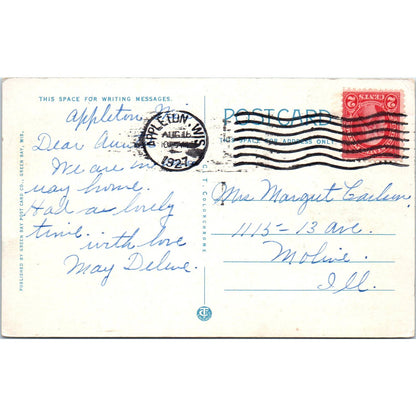 THIS SPACE FOR WRITING MESSAGES.
Appleton
Dear Aun
We are
way home.
Had a lovely
time.
with love
May Deline.
PUBLISHED BY GREEN BAY POST CARD CO., GREEN BAY, WIS.
APPLETON, WIS.
AUG 18
1927
POST CARD
THIS SPACE FOR ADDRESS ONLY
2 CENTS 2
Mrs Margret Carlson
1115-13 Ave.
Moline
Ill.